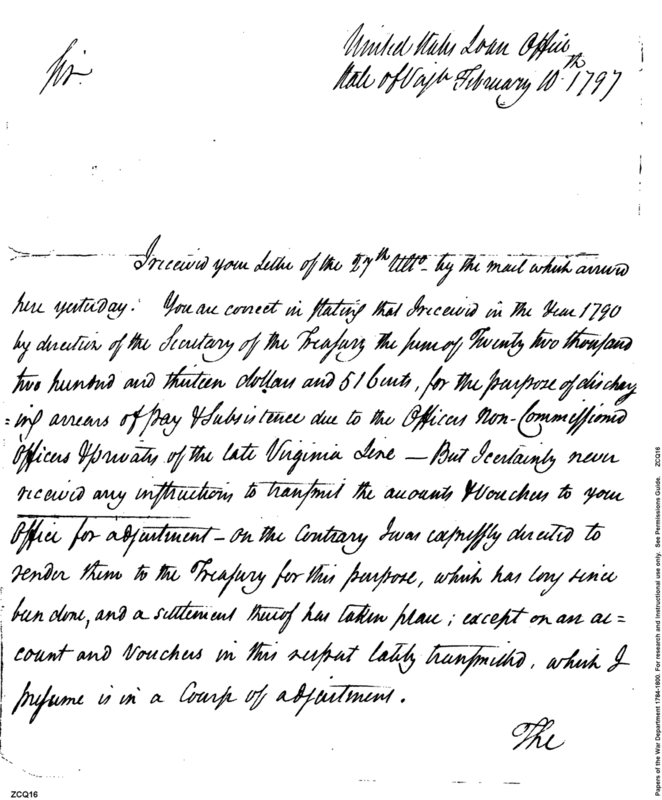 United States Loan Office
Sir.
State of Virgª February 10th 1797
I received your Letter of the 27th Ulto- by the mail which arrived
here yesterday. You are correct in stating that I received in the Year 1790
by direction of the Secretary of the Treasury the sum of Twenty two thousand
two hundred and thirteen dollars and 51 Cents, for the purpose of discharg
=ing arrears of pay & Subsistence due to the Officers Non-Commissioned
Officers & privates of the late Virginia Line — But I certainly never
received any instructions to transmit the accounts & Vouchers to your
Office for adjustment — on the Contrary I was expressly directed to
render them to the Treasury for this purpose, which has long since
been done, and a settlement thereof has taken place; except on an ac=
count and Vouchers in this respect lately transmitted, which I
presume is in a Course of adjustment.
The
ZCQ16
Papers of the War Department 1784-1800. For research and instructional use only. See Permissions Guide. ZCQ16